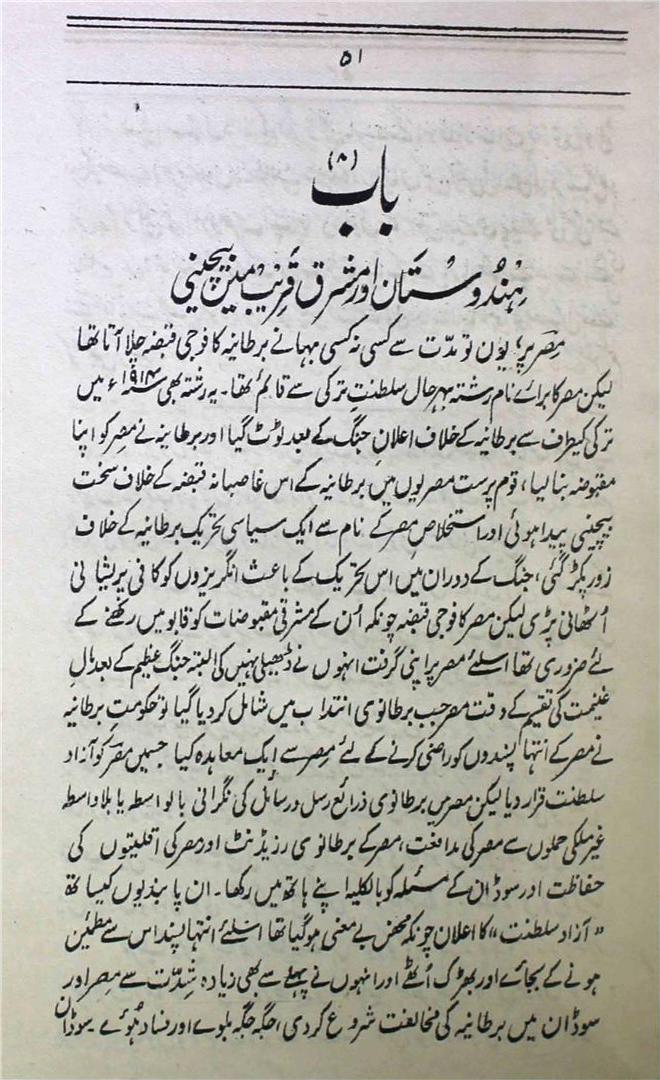 ۵۱
باب (۸)
ہندوستان اور مشرق قریب میں بیچینی
مصر پر یوں تو مدت سے کسی نہ کسی بہانے برطانیہ کا فوجی قبضہ چلا آتا تھا
لیکن مصر کا برائے نام رشتہ بہرحال سلطنت ترکی سے قائم تھا۔ یہ رشتہ بھی ۱۹۱۴ء میں
ترکی کیطرف سے برطانیہ کے خلاف اعلان جنگ کے بعد ٹوٹ گیا اور برطانیہ نے مصر کو اپنا
مقبوضہ بنا لیا، قوم پرست مصریوں میں برطانیہ کے اس غاصبانہ قبضہ کے خلاف سخت
بیچینی پیدا ہوئی اور استخلاص مصر کے نام سے ایک سیاسی تحریک برطانیہ کے خلاف
زور پکڑ گئی، جنگ کے دوران میں اس تحریک کے باعث انگریزوں کو کافی پریشانی
اُٹھانی پڑی لیکن مصر کا فوجی قبضہ چونکہ اُن کے مشرقی مقبوضات کو قابو میں رکھنے کے
لئے ضروری تھا اسلئے مصر پر اپنی گرفت انہوں نے ڈھیلی نہیں کی البتہ جنگ عظیم کے بعد مال
غنیمت کی تقسیم کے وقت مصر جب برطانوی انتداب میں شامل کر دیا گیا تو حکومت برطانیہ
نے مصر کے انتہا پسندوں کو راضی کرنے کے لئے مصر سے ایک معاہدہ کیا جسمیں مصر کو آزاد
سلطنت قرار دیا لیکن مصر میں برطانوی ذرائع رسل و رسائل کی نگرانی بالواسطہ یا بلاواسطہ
غیر ملکی حملوں سے مصر کی مدافعت، مصر کے برطانوی رزیڈنٹ اور مصر کی اقلیتوں کی
حفاظت اور سوڈان کے مسئلہ کو بالکلیہ اپنے ہاتھ میں رکھا۔ ان پابندیوں کیساتھ
"آزاد سلطنت" کا اعلان چونکہ محض بے معنی ہوگیا تھا اسلئے انتہا پسند اس سے مطمئین
ہونے کے بجائے اور بھڑک اُٹھے اور انہوں نے پہلے سے بھی زیادہ شدّت سے مصر اور
سوڈان میں برطانیہ کی مخالفت شروع کر دی، جگہ جگہ بلوے اور فساد ہوئے سوڈان